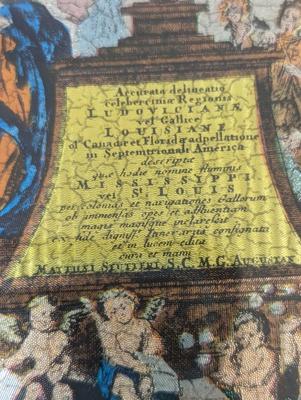 Accurata delineatio
celeberrimæ Regionis
LUDOVICIANÆ
vel Gallice
LOUISIANE
ol. Canadæ et Floridæ adpellatione
in Septemtrionali America
descriptæ
quæ hodie nomine fluminis
MISSISSIPPI
vel St. LOUIS
per colonias et navigationes Gallorum
ob immensas opes et adfluentiam
magis magisque inclarescit
itineraria consignata
et in lucem edita
cura et manu
MATTHÆI SEUTTERI, S. C. M. G. AUGUSTAN